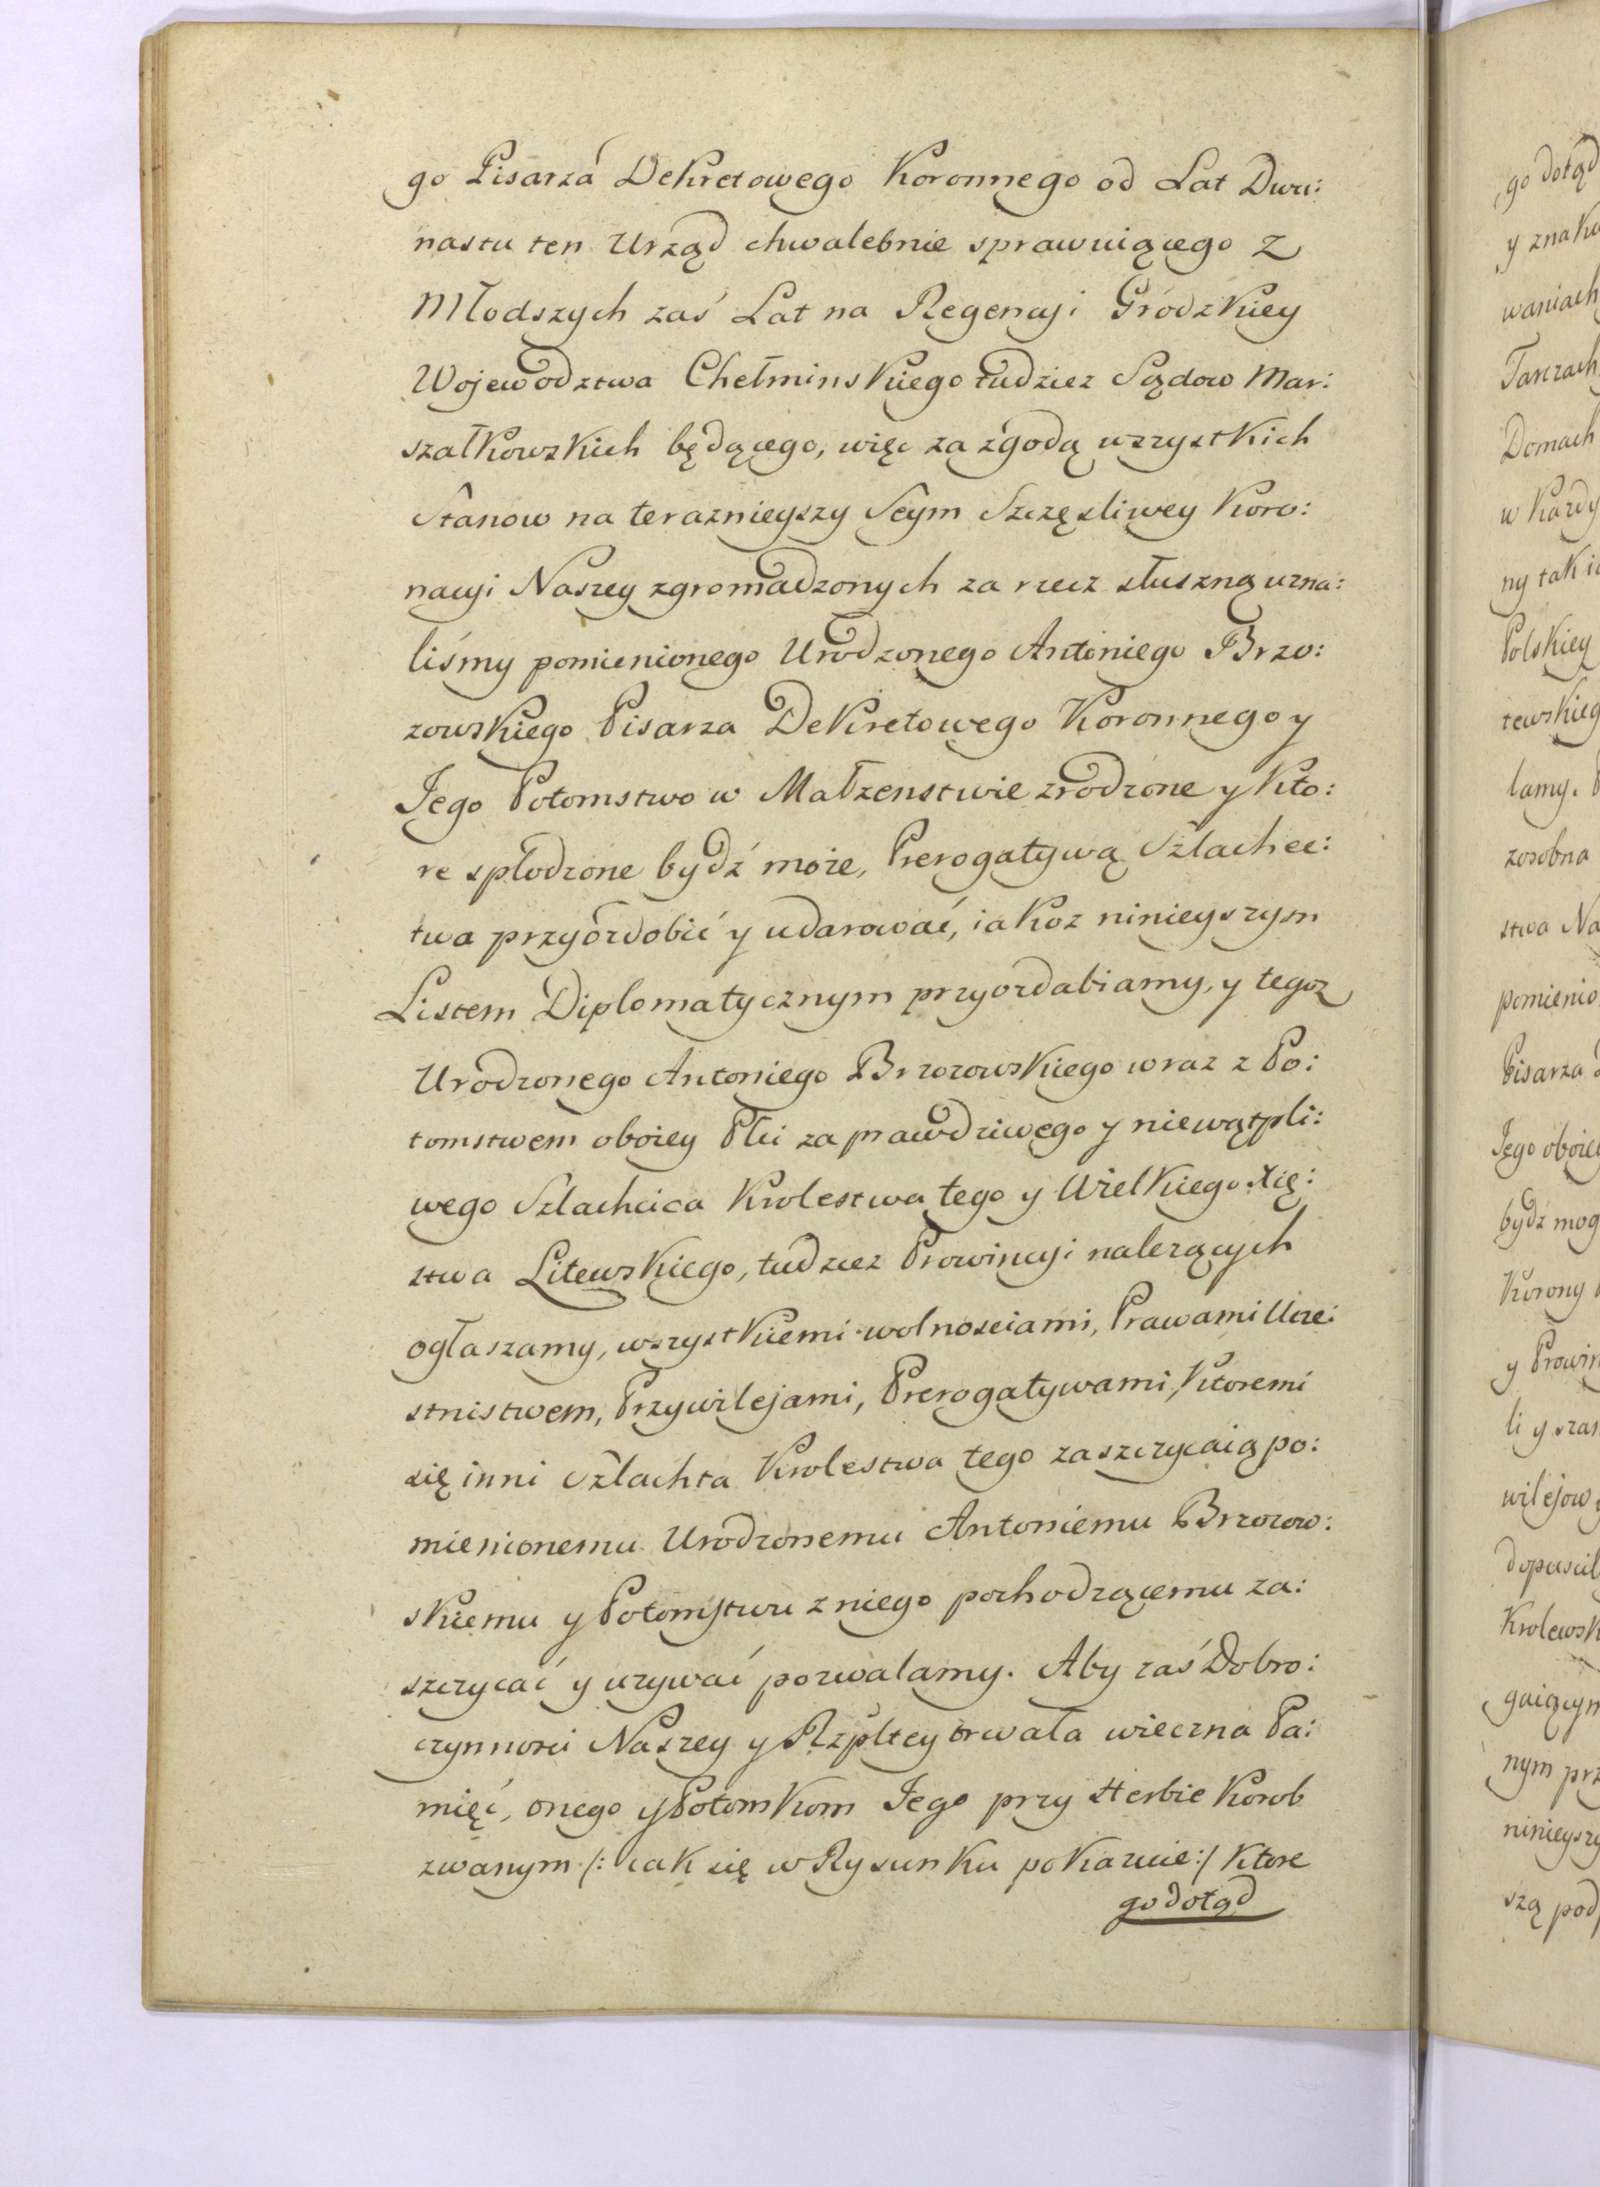 go Pisarza Dekretowego Koronnego od Lat Dwu:
nastu ten Urząd chwalebnie sprawuiącego z
Młodszych zaś Lat na Regencyi Grodzkiey
Wojewodztwa Chełminskiego tudziez Sądow Mar:
szałkowskich będącego, więc za zgodą wszystkich
Stanow na teraznieyszy Seym Szczęsliwey Koro:
nacyi Naszey zgromadzonych za rzecz słuszną uzna:
liśmy pomienionego Urodzonego Antoniego Brzo:
zowskiego Pisarza Dekretowego Koronnego y
Jego Potomstwo w Małzenstwie zrodzone y kto:
re spłodzone bydź może, Prerogatywą Szlachec:
twa przyozdobić y udarować, iakoz ninieyszym
Listem Diplomatycznym przyozdabiamy, y tegoz
Urodzonego Antoniego Brzozowskiego wraz z Po:
tomstwem oboiey Płci za prawdziwego y niewątpli:
wego Szlachcica Krolestwa tego y Wielkiego Xię:
stwa Litewskiego, tudziez Prowincyi nalezących
ogłaszamy, wszystkiemi wolnosciami, Prawami Ucze:
stnistwem, Przywilejami, Prerogatywami, Ktoremi
się inni Szlachta Krolestwa tego zaszczycaią po:
mienionemu Urodzonemu Antoniemu Brzozow:
skiemu y Potomstwu z niego pochodzącemu za:
szczycać y uzywać pozwalamy. Aby zaś Dobro:
czynnosci Naszey y Rzpltey trwała wieczna Pa:
mięć, onego y Potomkom Jego przy Herbie Korob
zwanym /: iak się w Rysunku pokazuie :/ Ktore
go dotąd
go dotąd
y znaku
waniach
Tarczach
Domach
w Kazdy
ny tak i
Polskiey
tewskieg
lamy.
zosobna
stwa Na
pomienio
Pisarza
Jego oboiey
bydz mog
Korony
y Prowin
li y szan
wilejow
dopuscil
Krolewsk
gaiącym
nym prz
ninieyszy
szą pod